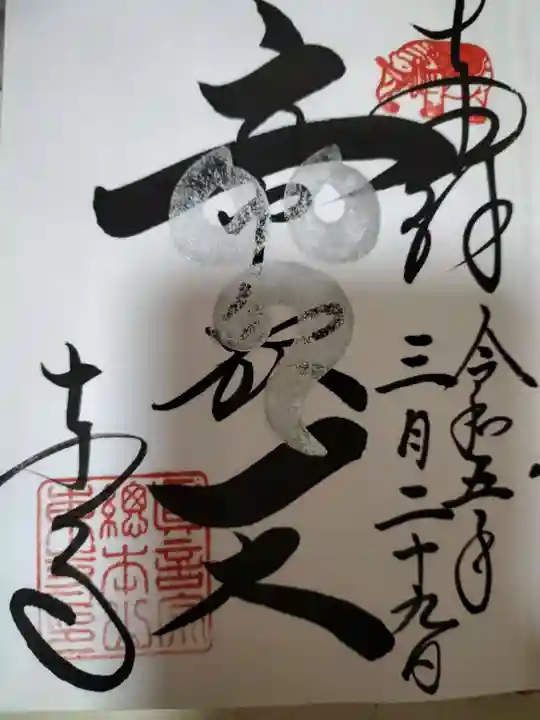 奉拝
令和五年
三月二十九日
帝釈天
東寺
真言宗
總本山